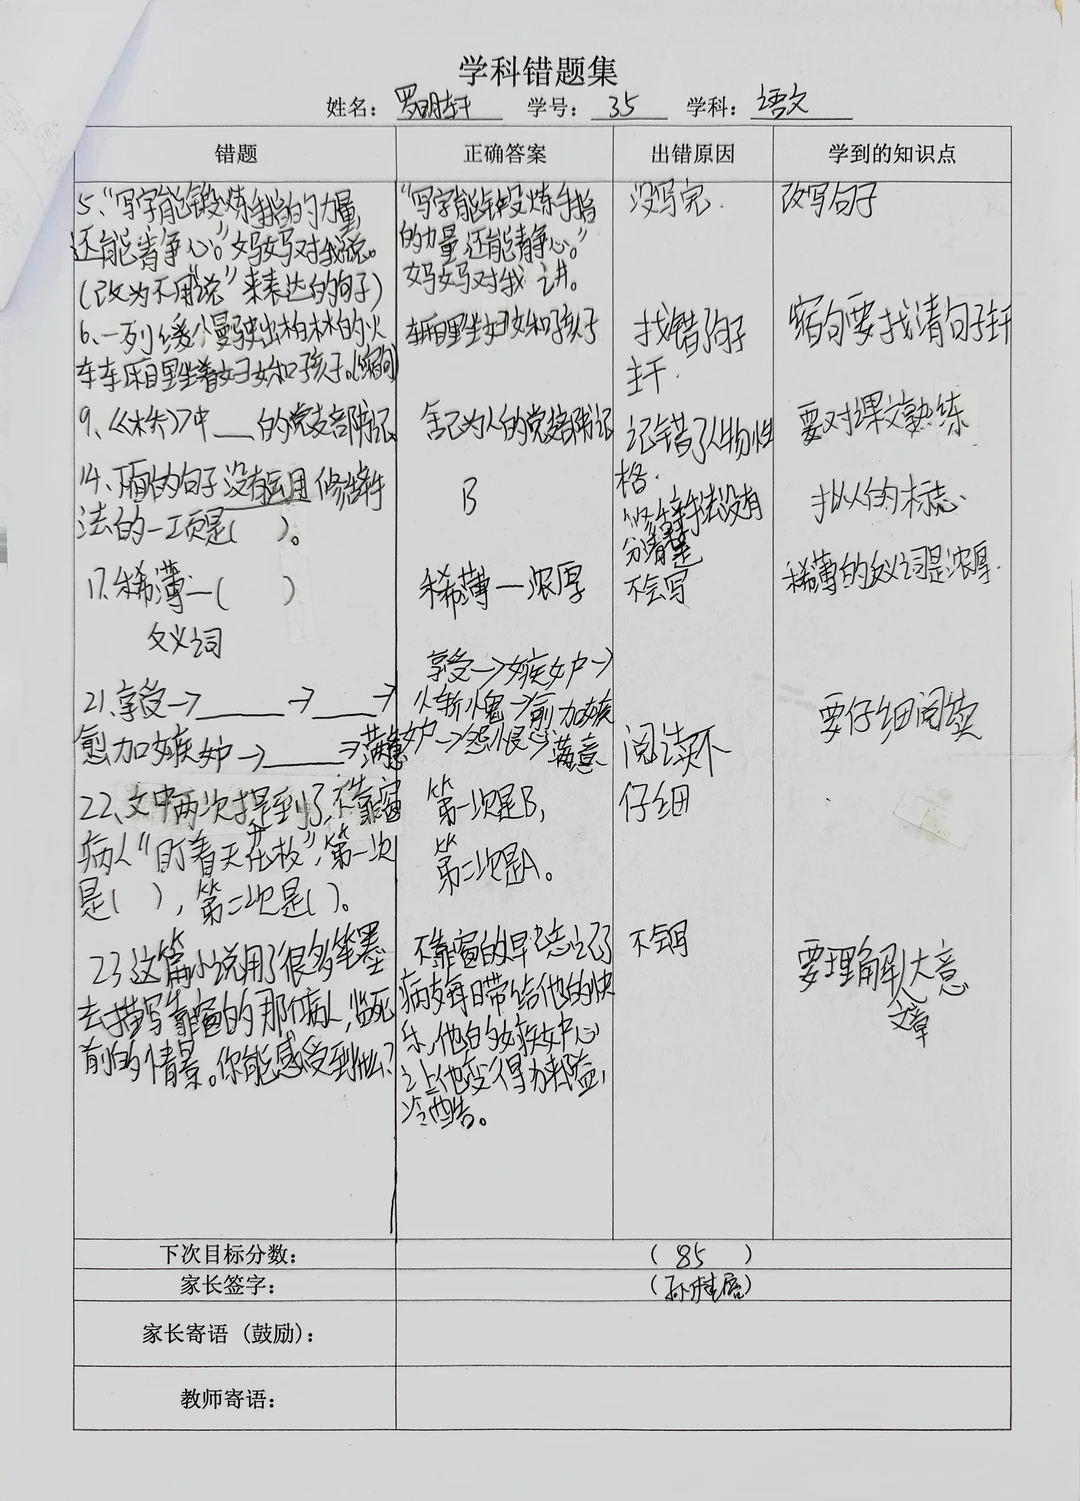 学科错题集
姓名：罗明轩 学号：35 学科：语文
错题 正确答案 出错原因 学到的知识点
5、“写字能锻炼手指的力量,
还能清净心。”妈妈对我说。
(改为不用“说”来表达的句子)
“写字能锻炼手指
的力量还能清净心。”
妈妈对我讲。
没写完.
改写句子
6、一列缓慢驶出柏林的火
车车厢里坐着妇女和孩子。(缩句)
车厢里坐妇女和孩子
找错句子
主干.
缩句要找清句子主干
9、《桥》中___的党支部书记
舍己为人的党支部书记
记错了人物性
格.
要对课文熟练
14、下面的句子没有运用修辞手
法的一项是( )。
B
修辞手法没有
分清楚
拟人的标志.
17.稀薄—( )
反义词
稀薄—浓厚
不会写
稀薄的反义词是浓厚.
21、享受→______→____→
愈加嫉妒→_____→满意
享受→嫉妒→
惭愧→愈加嫉
妒→怨恨→满意
阅读不
仔细
要仔细阅读
22、文中两次提到了,不靠窗
病人“盯着天花板”,第一次
是( ),第二次是( )。
第一次是B,
第二次是A。
23 这篇小说用了很多笔墨
去描写靠窗的那个病人,临死
前的情景。你能感受到什么?
不靠窗的早已忘记了
病友每日带给他的快
乐,他的嫉妒心
让他变得为利益,
冷酷。
要理解文章大意
下次目标分数： (85)
家长签字：
家长寄语（鼓励）：
教师寄语：